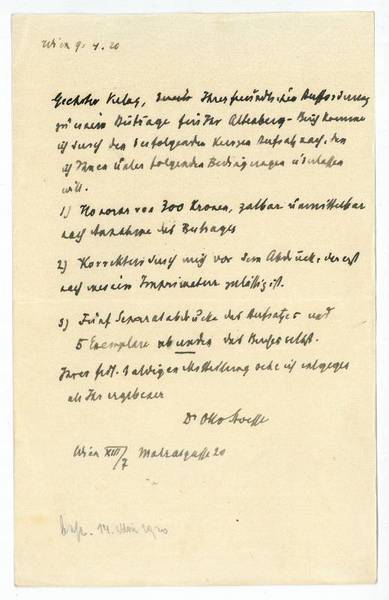 Wien 9. 4. 20
Geehrter Verlag, Ihrer freundlichen Aufforderung
zu einem Beitrage für Ihr Altenberg-Buch komme
ich durch den beifolgenden kurzen Aufsatz nach, den
ich Ihnen unter folgenden Bedingungen überlassen
will.
1) Honorar von 300 Kronen, zalbar unmittelbar
nach Annahme des Beitrages
2) Korrektur durch mich vor dem Abdruck, der erst
nach meinem Imprimatur zulässig ist.
3) Fünf Separatabdrücke des Aufsatzes und
5 Exemplare des Buches selbst.
Ihrer frdl. baldigen Mitteilung sehe ich entgegen
als Ihr ergebener
Dr Otto Stoessl
Wien XIII/7 Matrasgasse 20
14. 1920